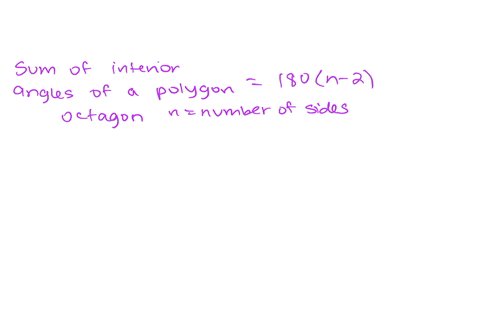 Sum of interior
angles of a polygon = 180(n-2)
octagon n = number of sides